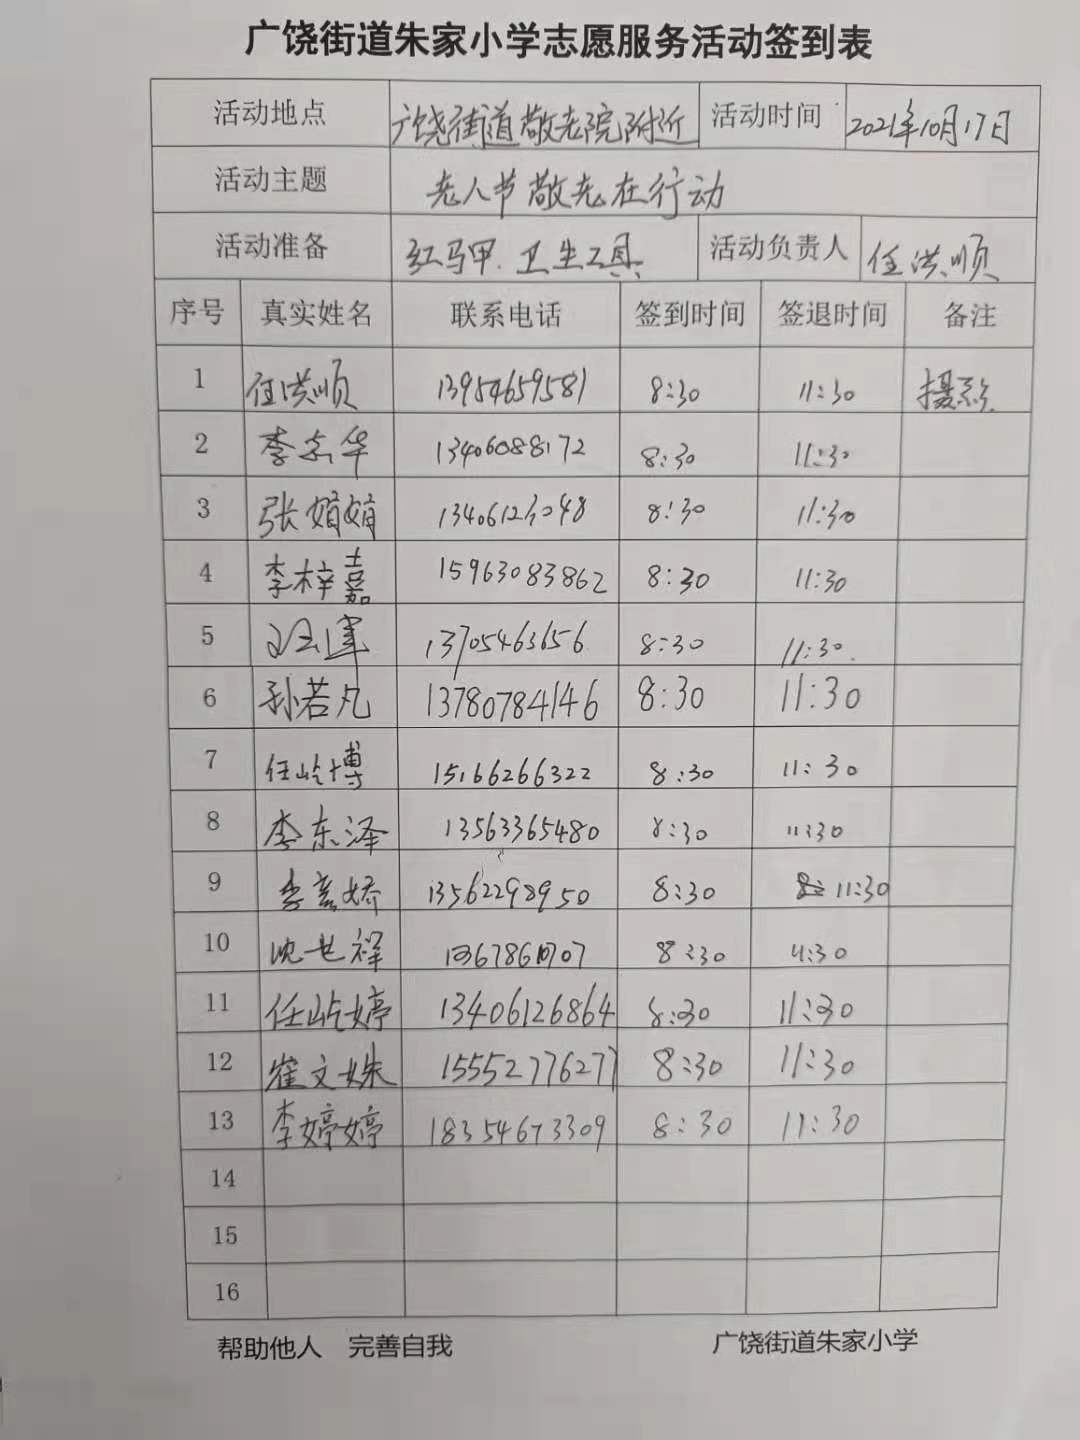 广饶街道朱家小学志愿服务活动签到表
活动地点 广饶街道敬老院附近 活动时间 2021年10月17日
活动主题 老人节敬老在行动
活动准备 红马甲.卫生工具 活动负责人 任洪顺
序号 真实姓名 联系电话 签到时间 签退时间 备注
1 任洪顺 13954659581 8:30 11:30 摄影
2 李志华 13406088172 8:30 11:30
3 张娟娟 13406123048 8:30 11:30
4 李梓嘉 15963083862 8:30 11:30
5 13705463656 8:30 11:30
6 孙若凡 13780784146 8:30 11:30
7 任屹博 15166266322 8:30 11:30
8 李东泽 13563365480 8:30 11:30
9 李嘉娇 13562298950 8:30 11:30
10 沈世祥 8:30 11:30
11 任屹婷 13406126864 8:30 11:30
12 崔文姝 15552776277 8:30 11:30
13 李婷婷 18354673309 8:30 11:30
14
15
16
帮助他人 完善自我 广饶街道朱家小学